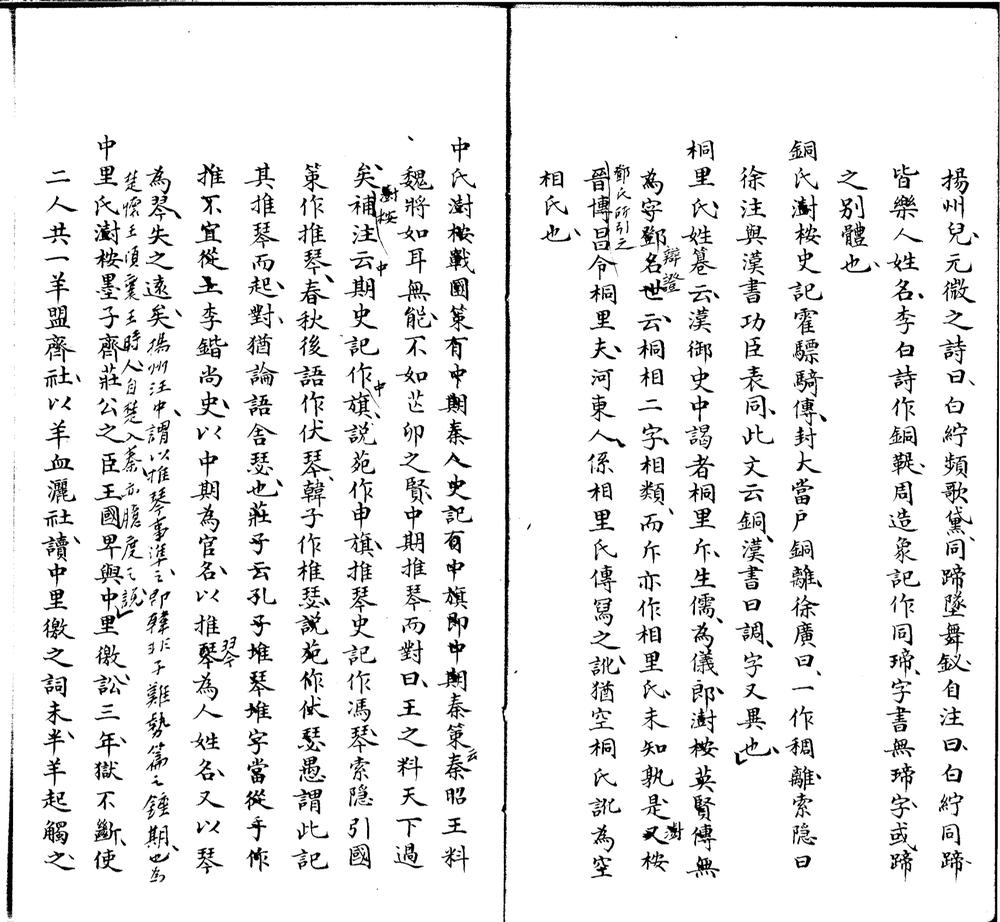 揚州兒元微之詩曰白紵頻歌黛同蹄墜舞釵自注曰白紵同蹄
皆樂人姓名李白詩作銅鞮周造衆記作同㻛字書無㻛字或蹄
之別體也
銅氏澍桉史記霍驃騎傳封大當戶銅離徐廣曰一作稠離索隐曰
徐注與漢書功臣表同此文云銅漢書曰調字又異也
桐里氏姓纂云漢御史中謁者桐里斥生儒為儀郎澍桉英賢傳無
為字鄧名世辯證云桐相二字相類而斥亦作相里氏未知孰是又澍桉
鄧氏所引之
晉博昌令桐里夫河東人係相里氏傳冩之訛猶空桐氏訛為空
相氏也
中氏澍桉戰國策有中期秦人史記有中旗即中期秦策云秦昭王料
魏將如耳無能不如芒卯之賢中期推琴而對曰王之料天下過
矣澍桉補注云中期史記作中旗說苑作申旗推琴史記作馮琴索隐引國
策作推琴春秋後語作伏琴韓子作推瑟說苑作伏瑟愚謂此記
其推琴而起對猶論語舍瑟也莊子云孔子堆琴堆字當從手作
推不宜從土李鍇尚史以中期為官名以推琴為人姓名又以琴
為琴失之遠矣揚州汪中謂以推琴事準之即韓非子難勢篇之鍾期也為
楚懷王頃襄王時人自楚入秦亦臆度之說
中里氏澍桉墨子齊莊公之臣王國卑與中里徼訟三年獄不斷使
二人共一羊盟齊社以羊血灑社讀中里徼之詞未半羊起觸之